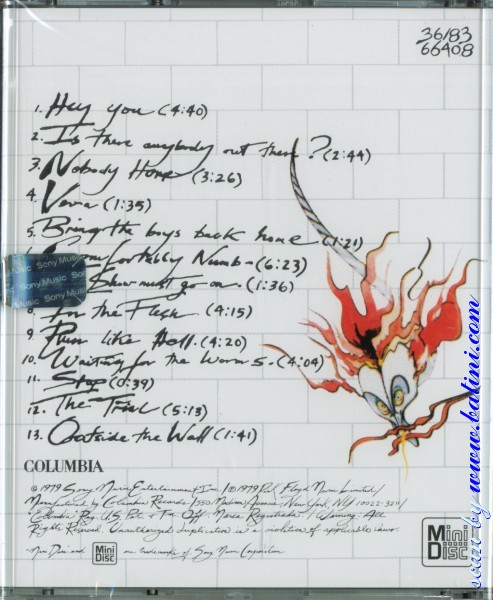 36/83
66408
1. Hey you (4:40)
2. Is there anybody out there? (2:44)
3. Nobody Home (3:26)
4. Vera (1:35)
5. Bring the boys back home (1:21)
Comfortably Numb - (6:23)
Show must go on (1:36)
8. In the Flesh (4:15)
9. Run like Hell. (4:20)
10. Waiting for the Worms - (4:04)
11. Stop (0:39)
12. The Trial (5:13)
13. Outside the Wall (1:41)
Music Sony Music
Sony Music So
Sony Music
COLUMBIA
© 1979 Sony Music Entertainment Inc./ ℗ 1979 Pink Floyd Music Limited/
Manufactured by Columbia Records/ 550 Madison Avenue, New York, NY 10022-3211/
"Columbia" Reg. U.S. Pat. & Tm. Off. Marca Registrada./ Warning: All
Rights Reserved. Unauthorized duplication is a violation of applicable laws.
Mini Disc and Mini Disc are trademarks of Sony Music Corporation
Mini
Disc
scart by www.batini.com